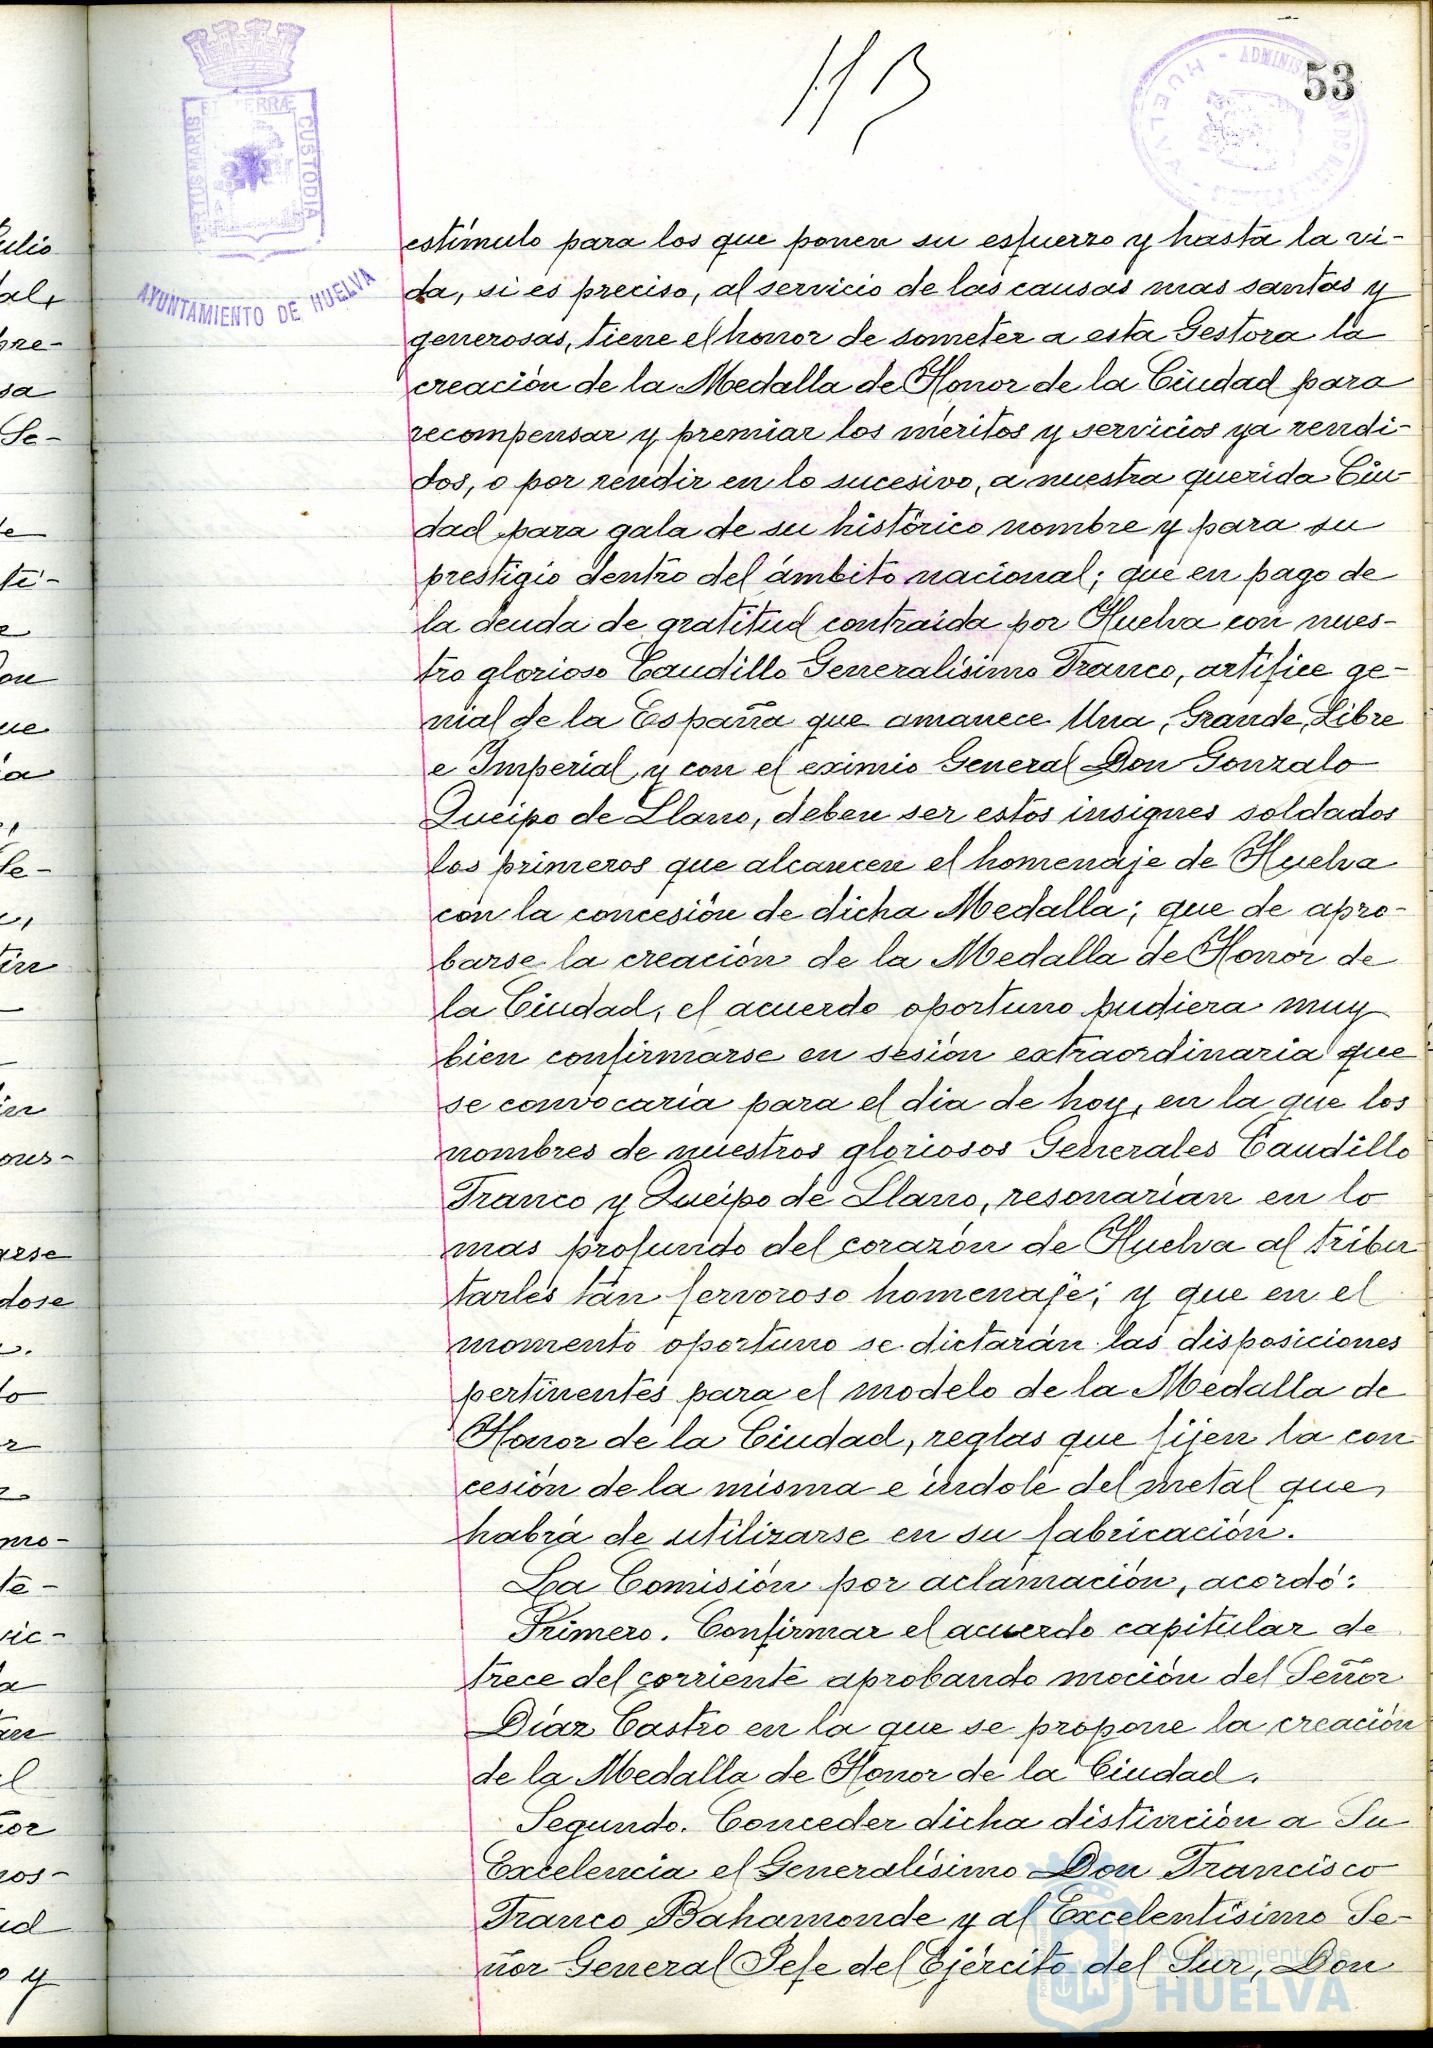 113
53
PORTUS MARIS ET TERRÆ CUSTODIA
AYUNTAMIENTO DE HUELVA
HUELVA - ADMINIS
estímulo para los que ponen su esfuerzo y hasta la vi-
da, si es preciso, al servicio de las causas mas santas y
generosas, tiene el honor de someter a esta Gestora la
creación de la Medalla de Honor de la Ciudad para
recompensar y premiar los méritos y servicios ya rendi-
dos, o por rendir en lo sucesivo, a nuestra querida Ciu-
dad para gala de su histórico nombre y para su
prestigio dentro del ámbito nacional; que en pago de
la deuda de gratitud contraída por Huelva con nues-
tro glorioso Caudillo Generalísimo Franco, artífice ge-
nial de la España que amanece Una, Grande, Libre
e Imperial y con el eximio General Don Gonzalo
Queipo de Llano, deben ser estos insignes soldados
los primeros que alcancen el homenaje de Huelva
con la concesión de dicha Medalla; que de apro-
barse la creación de la Medalla de Honor de
la Ciudad, el acuerdo oportuno pudiera muy
bien confirmarse en sesión extraordinaria que
se convocaría para el día de hoy, en la que los
nombres de nuestros gloriosos Generales Caudillo
Franco y Queipo de Llano, resonarían en lo
mas profundo del corazón de Huelva al tribu
tarles tan fervoroso homenaje; y que en el
momento oportuno se dictarán las disposiciones
pertinentes para el modelo de la Medalla de
Honor de la Ciudad, reglas que fijen la con
cesión de la misma e índole del metal que
habrá de utilizarse en su fabricación.
La Comisión por aclamación, acordó:
Primero. Confirmar el acuerdo capitular de
trece del corriente aprobando moción del Señor
Díaz Castro en la que se propone la creación
de la Medalla de Honor de la Ciudad.
Segundo. Conceder dicha distinción a Su
Excelencia el Generalísimo Don Francisco
Franco Bahamonde y al Excelentísimo Se-
ñor General Jefe del Ejército del Sur, Don
Ayuntamiento de
HUELVA